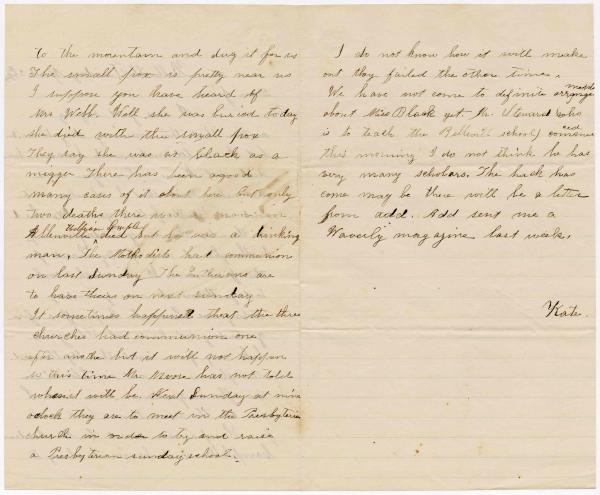 to the mountain and dug it for us
The small pox is pretty near us
I suppose you have heard of
Mrs Webb. Well she was buried today
she died with the small pox
They say she was as black as a
nigger There has been a good
many cases of it about here but only
two deaths there was a man in
Allenville died but he was a drinking
man, The Methodists had communion
on last Sunday The Lutherans are
to have theirs on next Sunday
It sometimes happined that the three
churches had communion one
after another but it will not happen
so this time Mr Moore has not told
when it will be. Next Sunday at nine
oclock they are to meet in the Presbyterian
church in order to try and raise
a Presbyterian sunday school.
I do not know how it will make
out they failed the other times.
We have not come to definite arrange
about Miss Black yet. Mr Steward (who
is to teach the school) commenced
this morning I do not think he has
very many scholars. The hack has
come may be there will be a letter
from add. Add sent me a
Waverly magazine last week.
Kate.